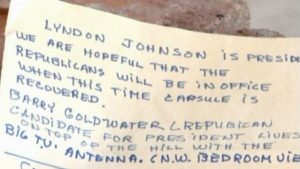 LYNDON JOHNSON IS PRESIDE
WE ARE HOPEFUL THAT THE
REPUBLICANS WILL BE IN OFFICE
WHEN THIS TIME CAPSULE IS
RECOVERED.
BARRY GOLDWATER (REPUBICAN
CANDIDATE FOR PRESIDENT LIVES
ON TOP OF THE HILL WITH THE
BIG T.V. ANTENNA. (N.W. BEDROOM VIE